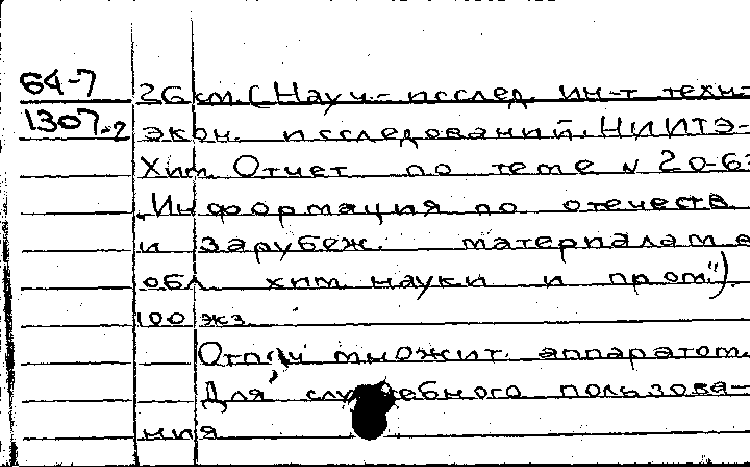 64-7
1307-2
26 см. (Науч.-исслед. ин-т техн-
экон. исследований. НИИТЭ-
Хим. Отчет по теме N 20-63
„Информация по отечеств
и зарубеж. материалам в
обл. хим. науки и пром.")
100 экз.
Отпеч множит. аппаратом.
Для служебного пользова-
ния